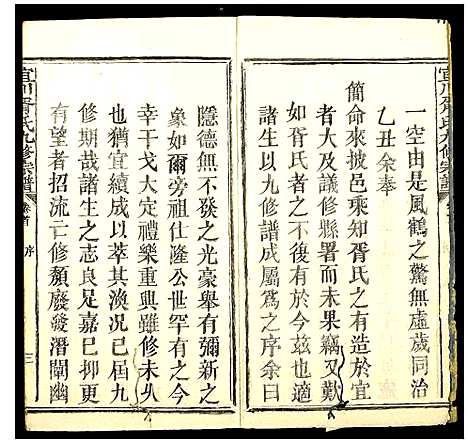 宜川胥氏九修宗譜
一空由是風鶴之驚無虛歲同治
乙丑余奉
簡命來披邑乘知胥氏之有造於宜
者大及議修縣署而未果竊又歎
胥氏之不復有於今茲矣乃未幾
諸生以九修譜成屬爲之序余曰
隱德無不發之光豪舉有彌新之
象如爾旁祖仕隆公世罕有之今
幸干戈大定禮樂重興雖修未乆
也猶宜續成以萃其渙况已屆九
修期哉諸生之志良足嘉巳吏斯
有望者招流亡修頽廢發潛闡幽
宜川胥氏九修宗譜
卷首
序
三